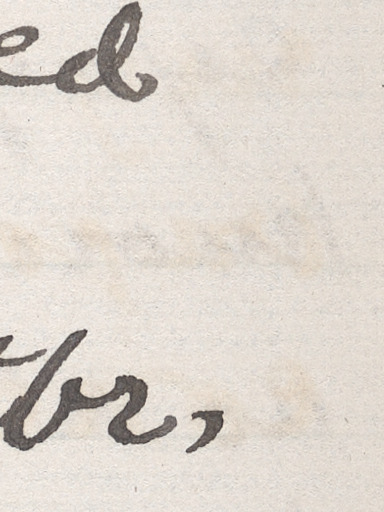 ed
br,